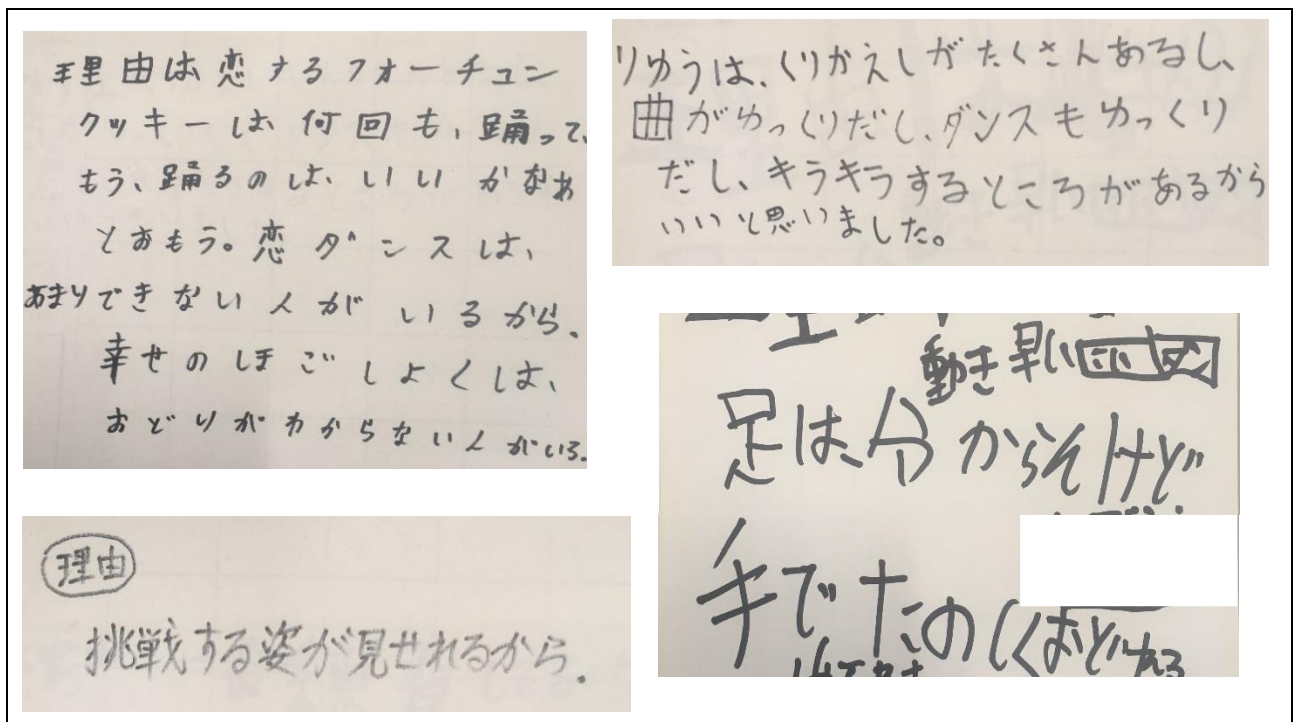 理由は恋するフォーチュン
クッキーは、何回も、踊って、
もう、踊るのは、いいかなあ
とおもう。恋ダンスは、
あまりできない人がいるから。
幸せのほごしょくは、
おどりがわからない人がいる。
りゆうは、くりかえしがたくさんあるし、
曲がゆっくりだし、ダンスもゆっくり
だし、キラキラするところがあるから
いいと思いました。
理由
挑戦する姿が見せれるから。
動き早い
足は、分からんけど
手でたのしくおどれる